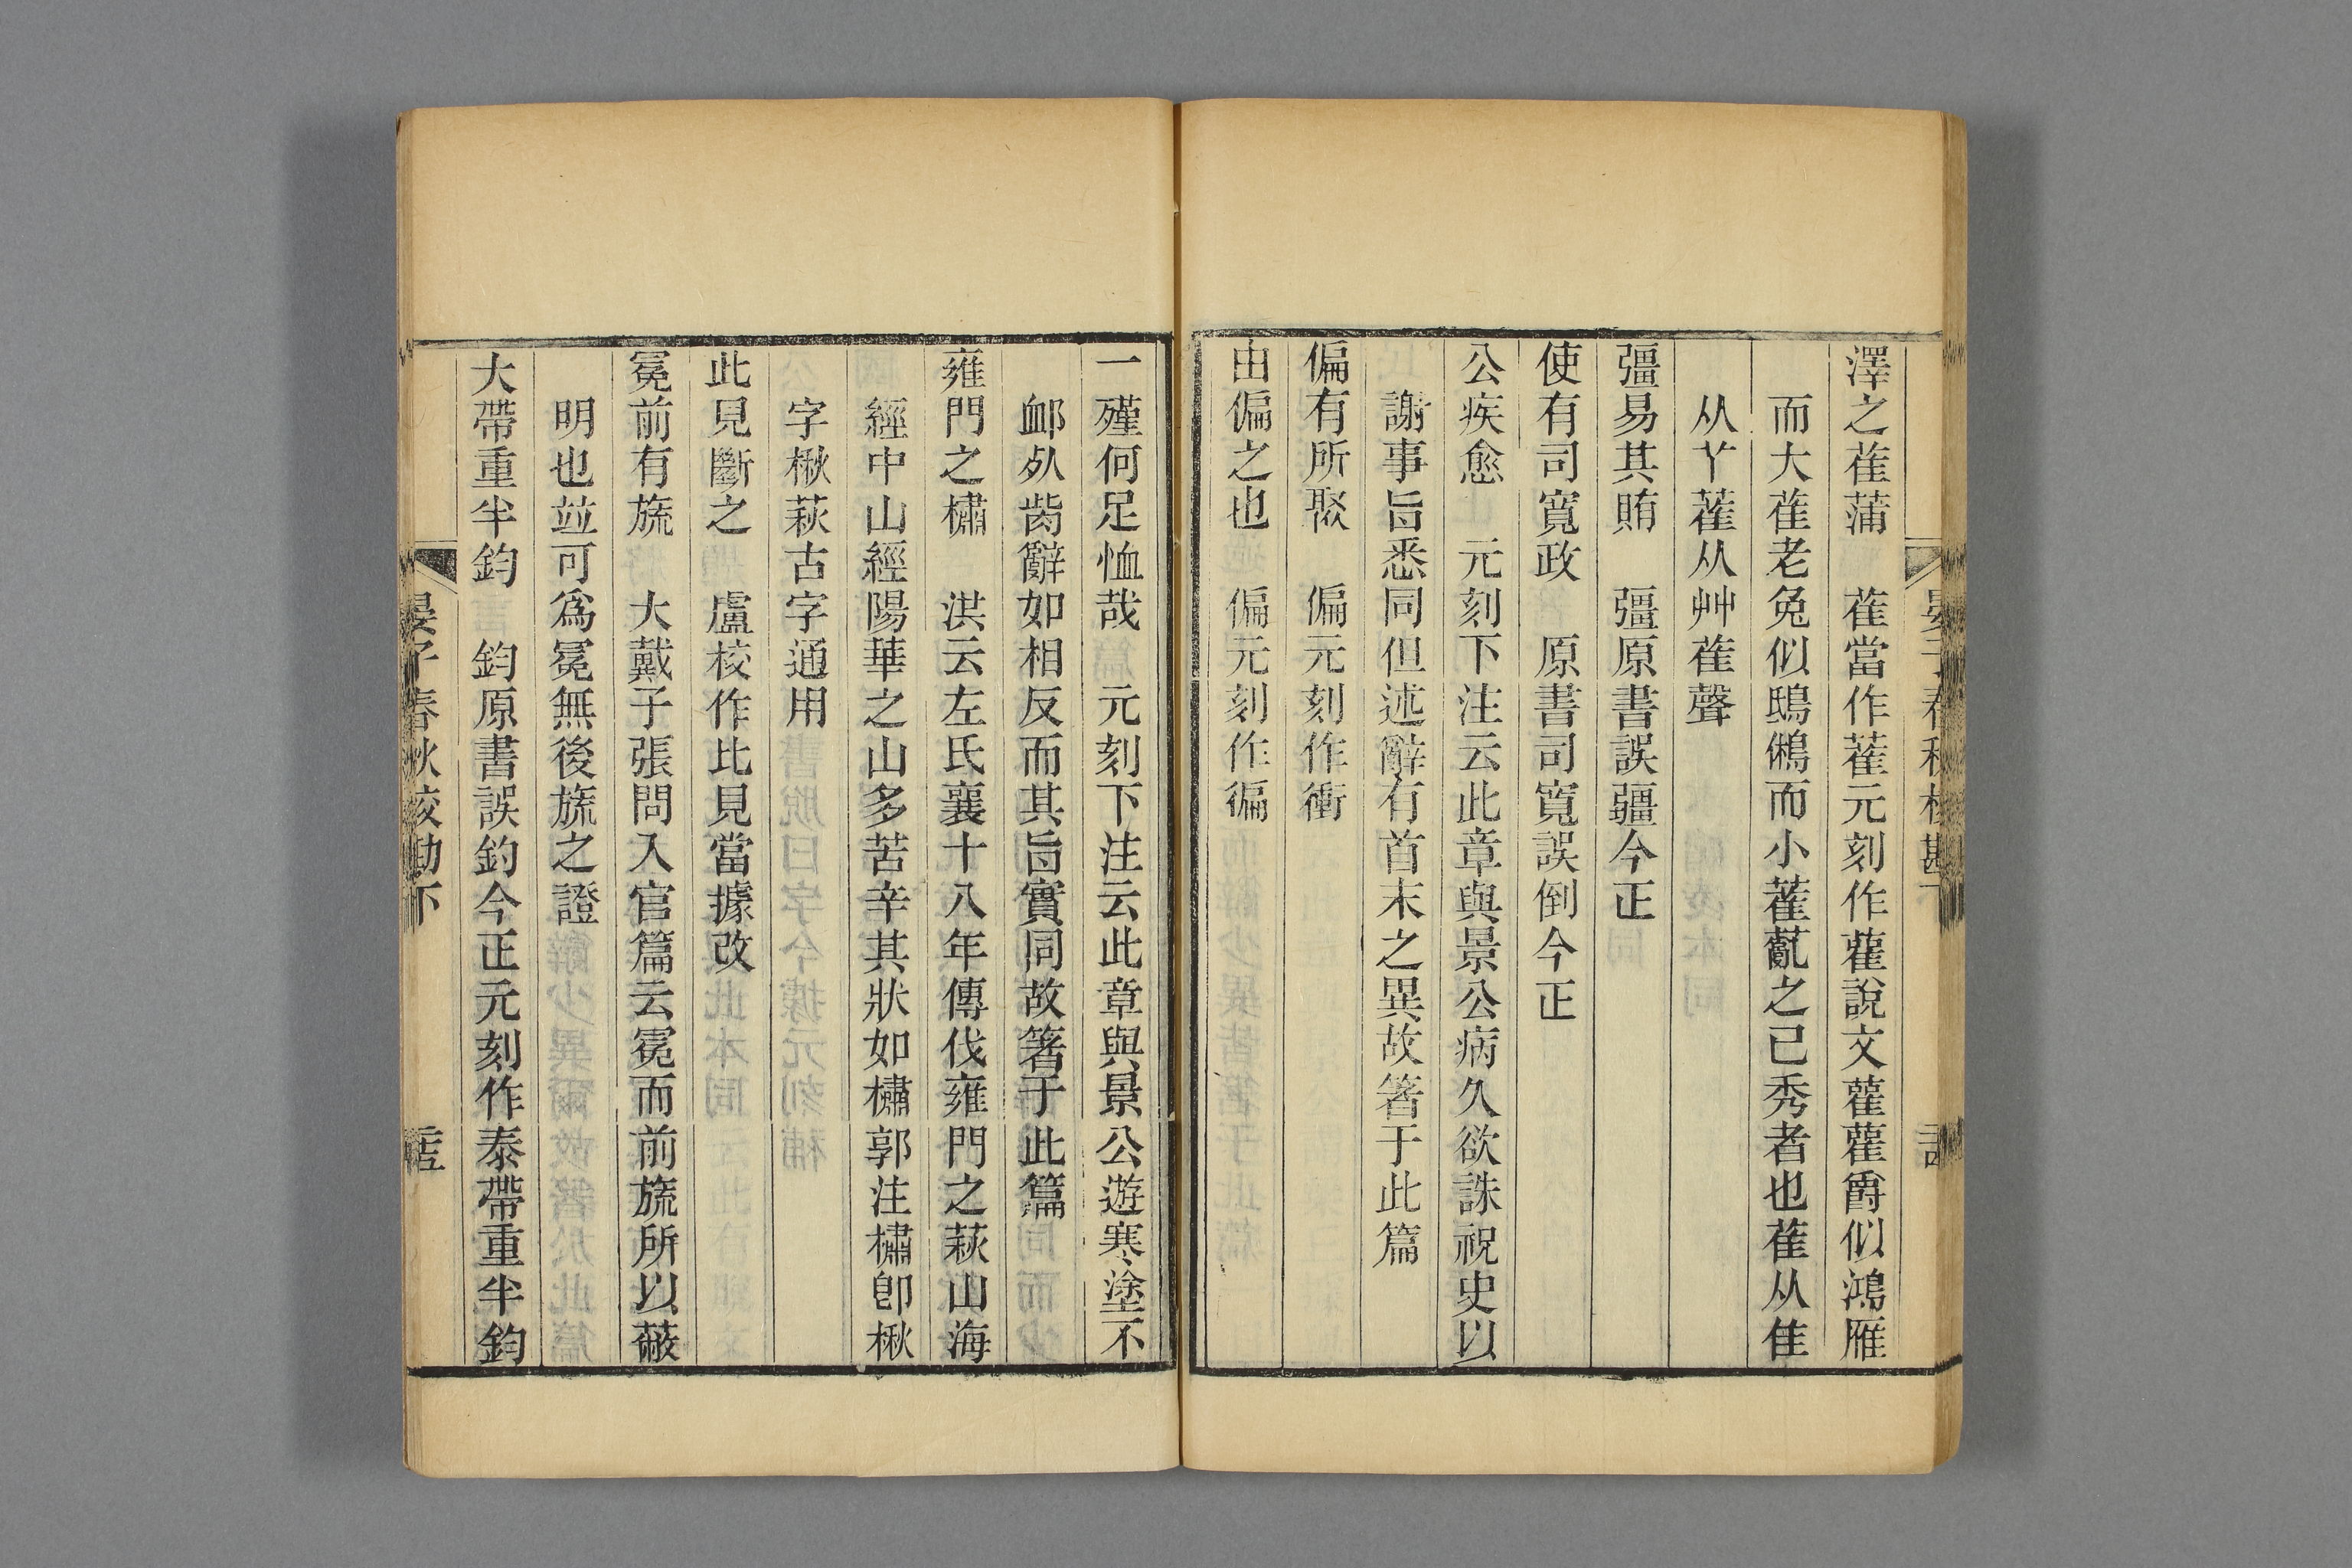 澤之萑蒲　萑當作雚元刻作雚說文雚雚爵似鴻雁
而大萑老兔似鴟鵂而小雚薍之已秀者也萑从隹
从丫雚从艸萑聲
彊易其賄　彊原書誤疆今正
使有司寬政　原書司寬誤倒今正
公疾愈　元刻下注云此章與景公病久欲誅祝史以
謝事旨悉同但述辭有首末之異故箸于此篇
偏有所聚　偏元刻作衝
由偏之也　偏元刻作徧
一殣何足恤哉　元刻下注云此章與景公遊寒塗不
卹死胔辭如相反而其旨實同故箸于此篇
雍門之橚　洪云左氏襄十八年傳伐雍門之萩山海
經中山經陽華之山多苦辛其狀如橚郭注橚卽楸
字楸萩古字通用
此見斷之　盧校作比見當據改
冕前有旒　大戴子張問入官篇云冕而前旒所以蔽
明也竝可爲冕無後旒之證
大帶重半鈞　鈞原書誤鈞今正元刻作泰帶重半鈞
晏子春秋校勘下